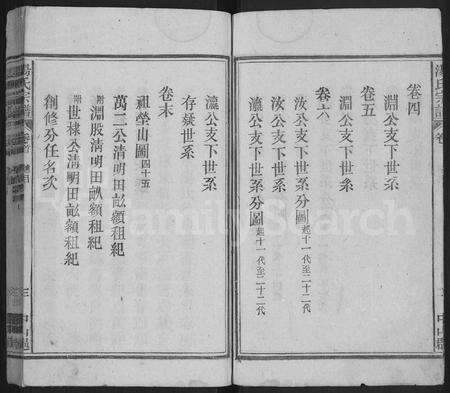 卷四
淵公支下世系
卷五
淵公支下世系
卷六
汝公支下世系
汝公支下世系分圖起十一代至二十二代
瀛公支下世系分圖起十一代至二十二代
瀛公支下世系
存疑世系
卷末
祖塋山圖四十五
萬二公清明田畝額租紀
附淵股清明田畝額租紀
附世棣公清明田畝額租紀
創修分任名次
湯氏宗譜
卷
三
中山郡
FamilySearch